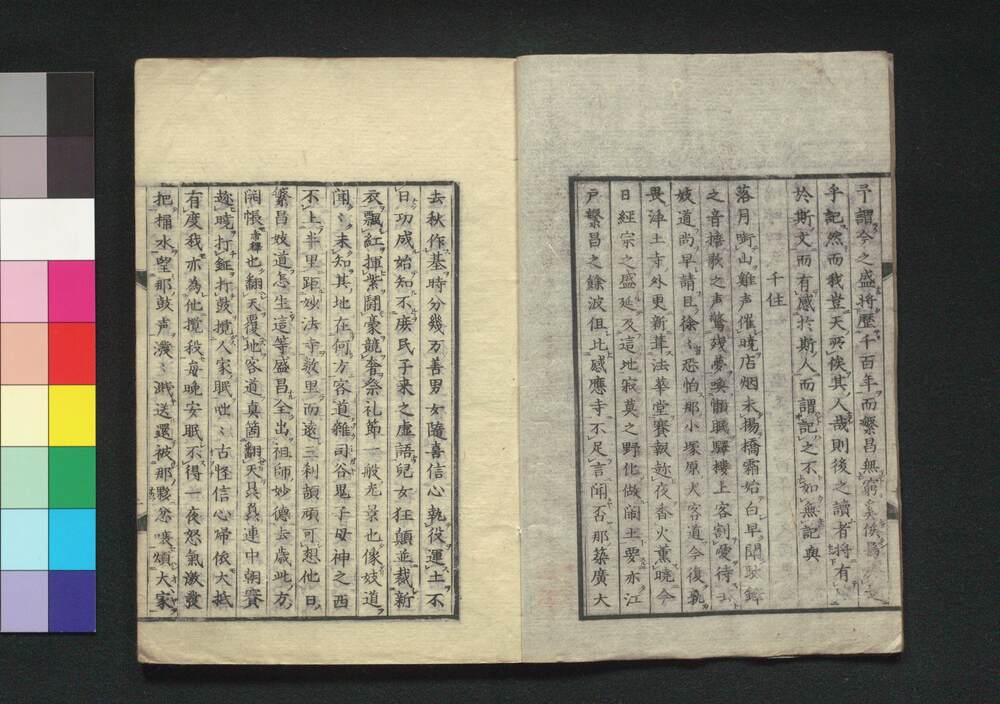 予謂今之盛将歴千百年而繁昌無窮矣俟
乎記然而我豈天所俟其人哉則後之讀者将有
於斯文而有感於斯人而謂記之不如無記與
千住
落月啣山雞声催暁店烟未揚橋霜始白早聞駄鐸
之音擔歌之声驚残夢喚懶眠驛樓上客割愛待
妓道尚早請且徐〻恐怕那小塚原犬客道今復
畏浄土寺外更新葺法華堂賽報夜香火薫暁今
日経宗之盛延及這地寂莫之野化做閙土要亦江
戸繁昌之餘波但比感應寺不足言聞否那築廣大
去秋作基時分幾万善男女隨喜信心執役運土不
日功成始知不庶民子来之虚語兒女狂顛並裁新
衣飄紅揮紫鬪豪競奢祭礼節一般光景也像妓道
聞〻未知其地在何方客道雜司谷鬼子母神之西
不上半里距妙法寺数里而遠三利頡頏可想他日
繁昌妓道怎生這等盛昌全出祖師妙德去歳此方
開帳帝釋也翻天覆地客道真箇翻天具真連中朝賽
趁暁打鉦打鼓攪人家眠咄〻古怪信心帰依大抵
有度我亦為他攪殺毎晩安眠不得一夜怒氣激發
把桶水望那鼓声溌〻濺送還被那夥忿噪頌大家